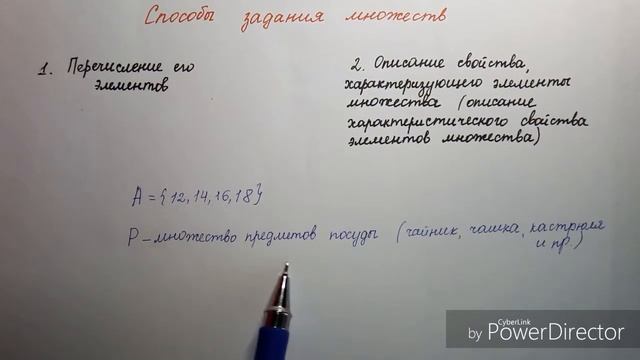 Способы задания множеств
1. Перечисление его
элементов
2. Описание свойства,
характеризующего элементы
множества (описание
характеристического свойства
элементов множества)
A = {12, 14, 16, 18}
P – множество предметов посуды (чайник, чашка, кастрюля
и пр.)
CyberLink
by PowerDirector